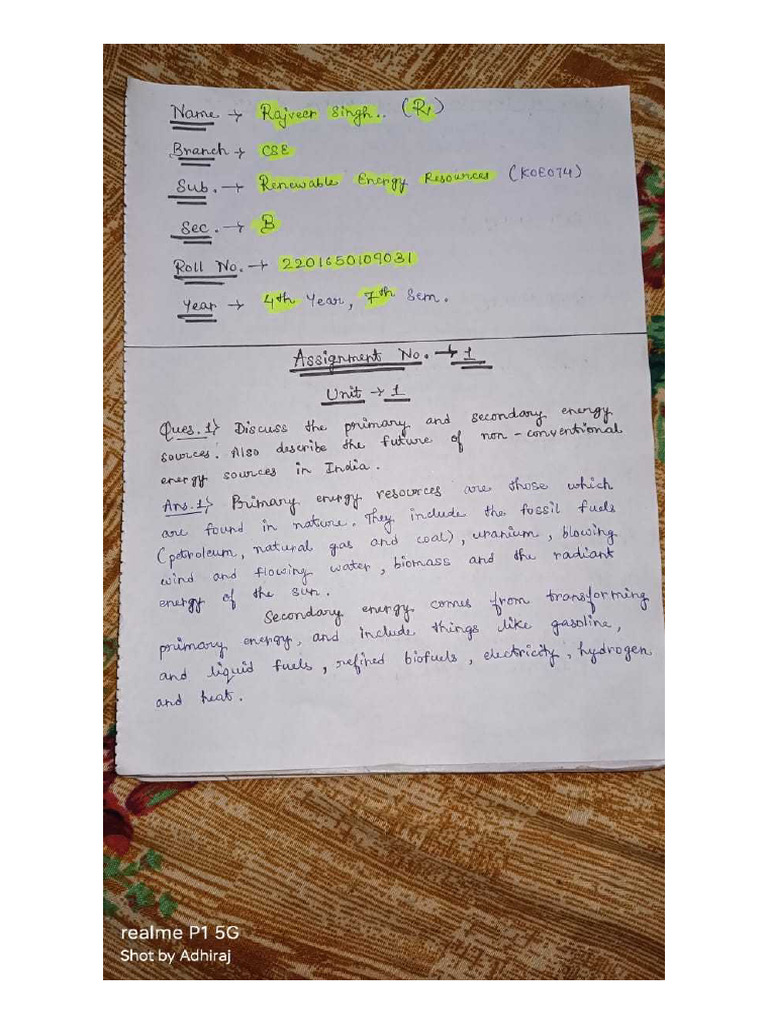 Name → Rajveer Singh.. (R1)
Branch → CSE
Sub. → Renewable Energy Resources (KOE074)
Sec. → B
Roll No. → 2201650109031
Year → 4th Year, 7th Sem.
Assignment No. → 1
Unit → 1
Ques. 1) Discuss the primary and secondary energy
sources. Also describe the future of non-conventional
energy sources in India.
Ans. 1) Primary energy resources are those which
are found in nature. They include the fossil fuels
(petroleum, natural gas and coal), uranium, blowing
wind and flowing water, biomass and the radiant
energy of the sun.
Secondary energy comes from transforming
primary energy, and include things like gasoline,
and liquid fuels, refined biofuels, electricity, hydrogen
and heat.
realme P1 5G
Shot by Adhiraj